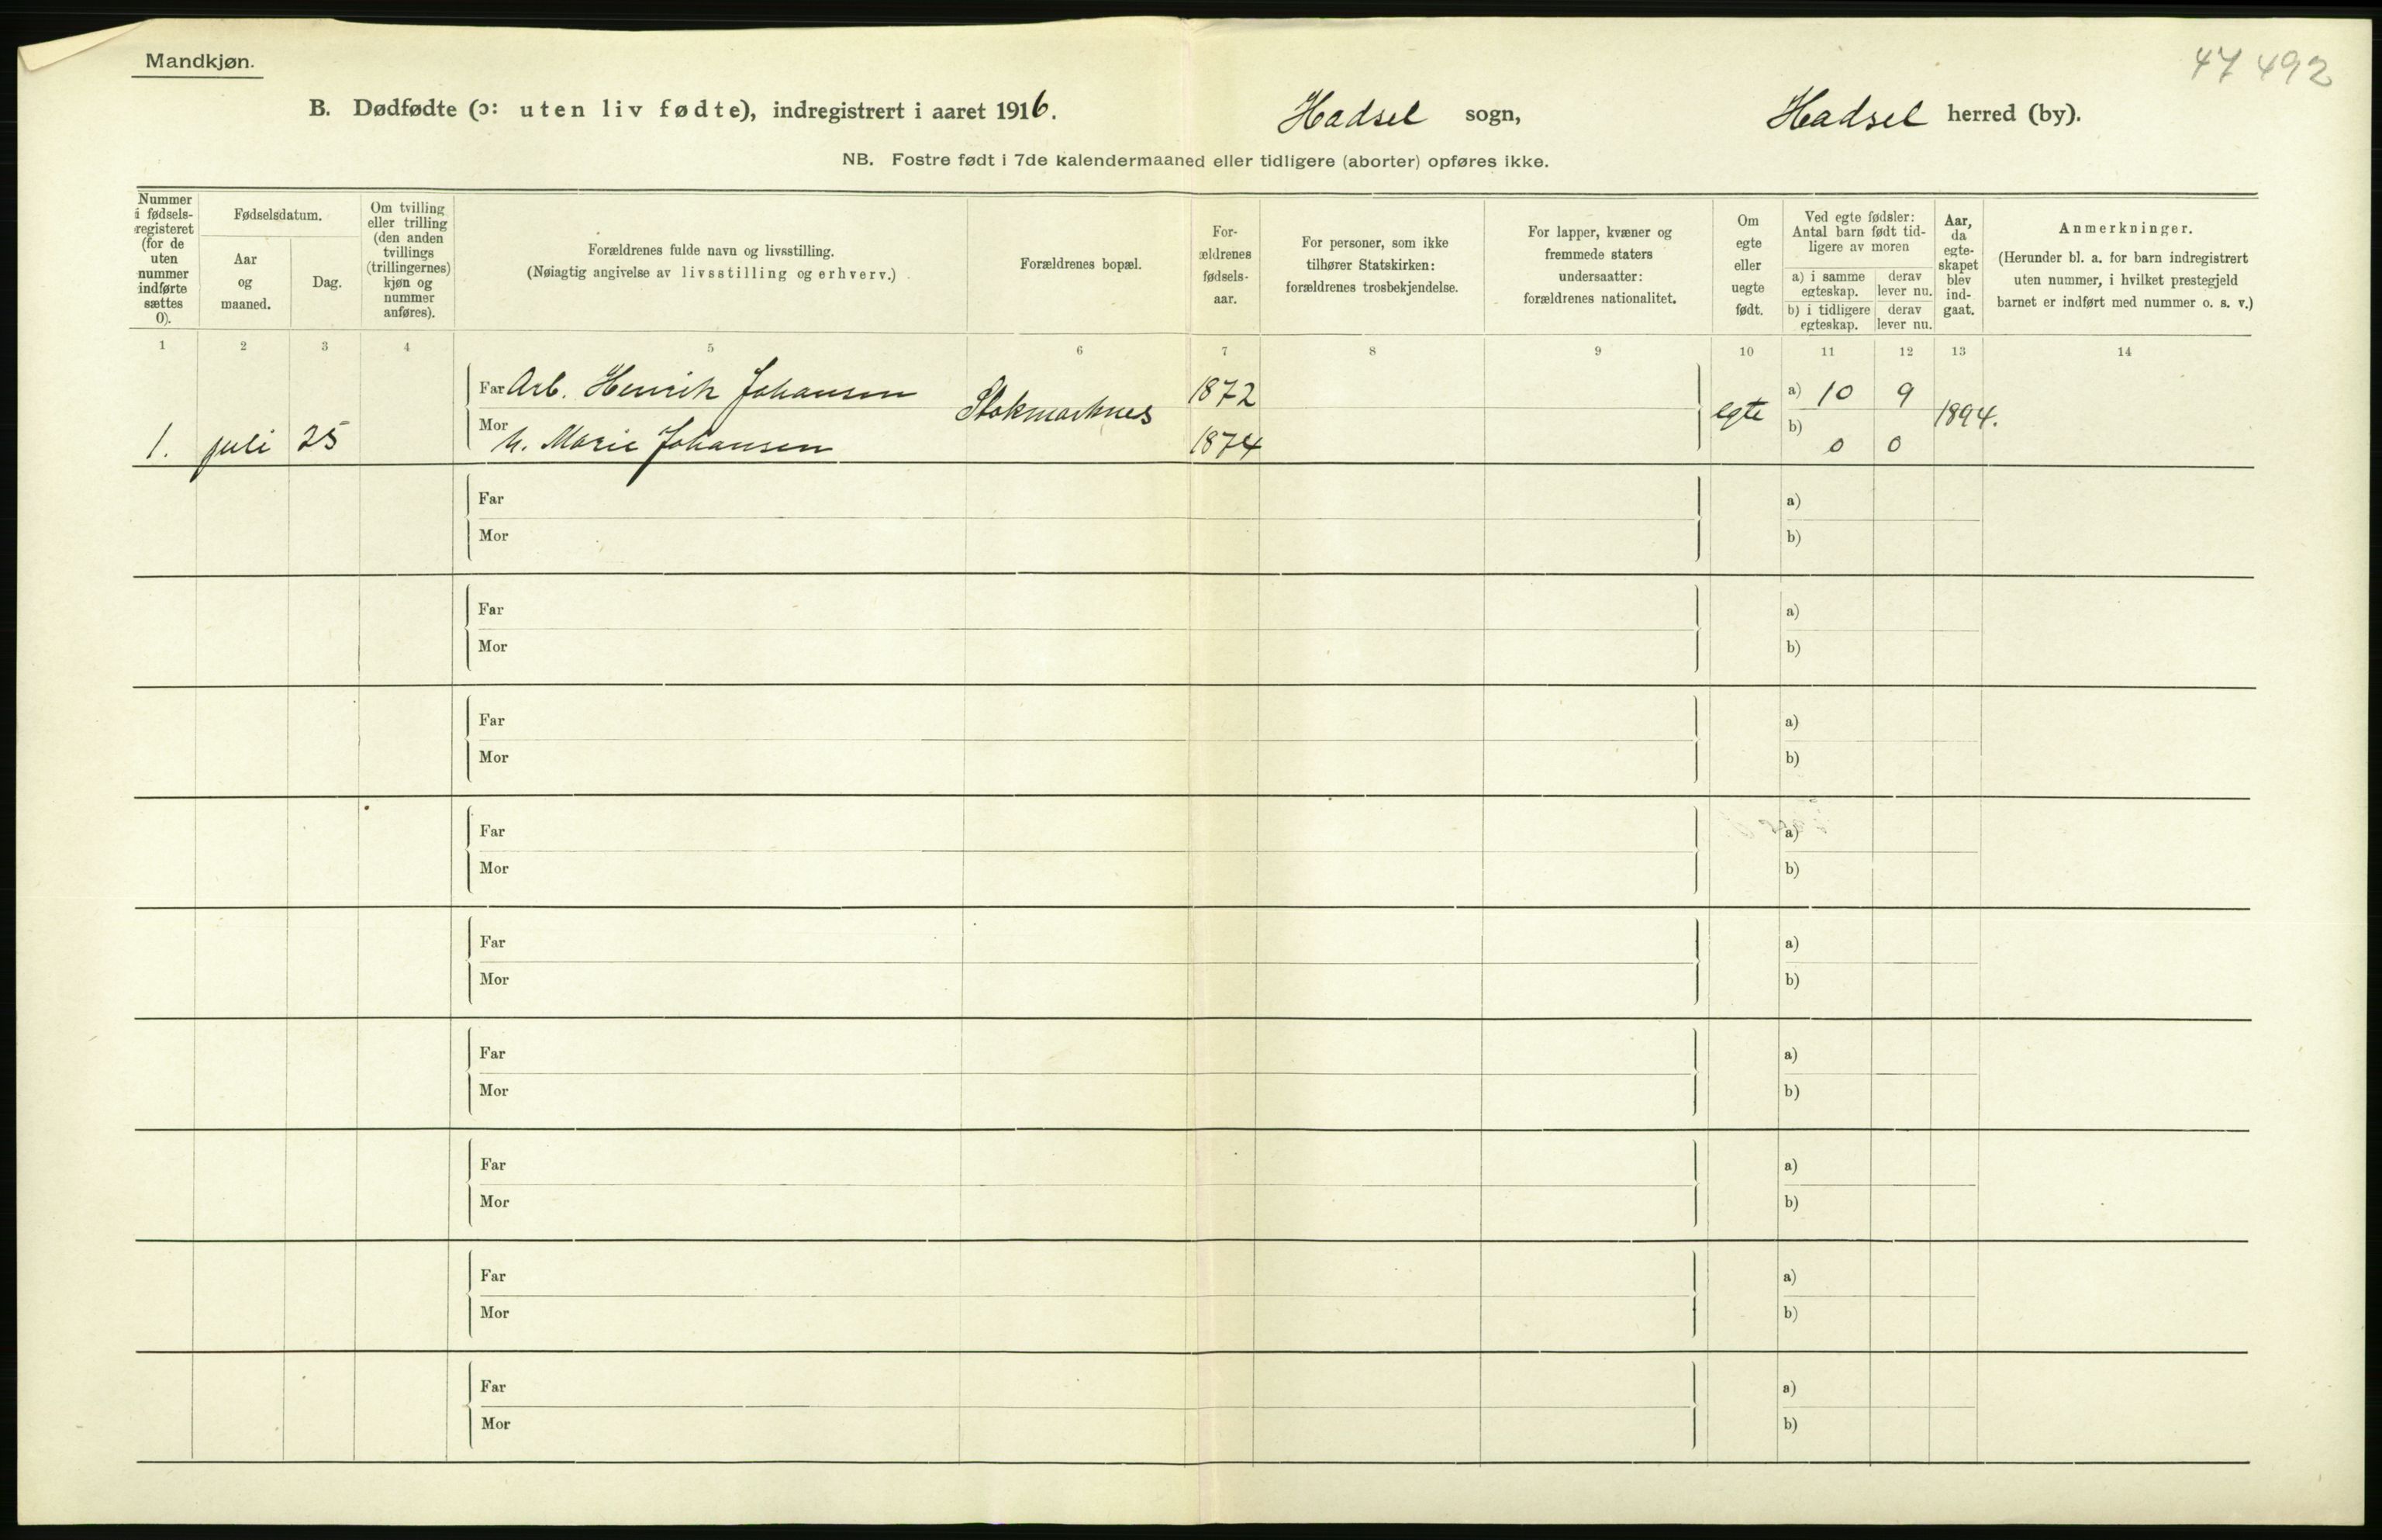 Mandkjøn.
47 492
B. Dødfødte (ɔ: uten liv fødte), indregistrert i aaret 1916. Hadsel sogn, Hadsel herred (by).
NB. Fostre født i 7de kalendermaaned eller tidligere (aborter) opføres ikke.
Nummer i fødsels-registeret (for de uten nummer indførte sættes 0).
Fødselsdatum.
Aar og maaned.
Dag.
Om tvilling eller trilling (den anden tvillings (trillingernes) kjøn og nummer anføres).
Forældrenes fulde navn og livsstilling.
(Nøiagtig angivelse av livsstilling og erhverv.)
Forældrenes bopæl.
For-ældrenes fødsels-aar.
For personer, som ikke tilhører Statskirken: forældrenes trosbekjendelse.
For lapper, kvæner og fremmede staters undersaatter: forældrenes nationalitet.
Om egte eller uegte født.
Ved egte fødsler: Antal barn født tid-ligere av moren
a) i samme egteskap.
derav lever nu.
b) i tidligere egteskap.
derav lever nu.
Aar, da egte-skapet blev ind-gaat.
Anmerkninger.
(Herunder bl. a. for barn indregistrert uten nummer, i hvilket prestegjeld barnet er indført med nummer o. s. v.)
1 2 3 4 5 6 7 8 9 10 11 12 13 14
Far Arb. Henrik Johansen Stokmarknes 1872 egte a) 10 9 1894.
1. juli 25 Mor h. Marie Johansen 1874 b) 0 0
Far a)
Mor b)
Far a)
Mor b)
Far a)
Mor b)
Far a)
Mor b)
Far a)
Mor b)
Far a)
Mor b)
Far a)
Mor b)
Far a)
Mor b)
Far a)
Mor b)